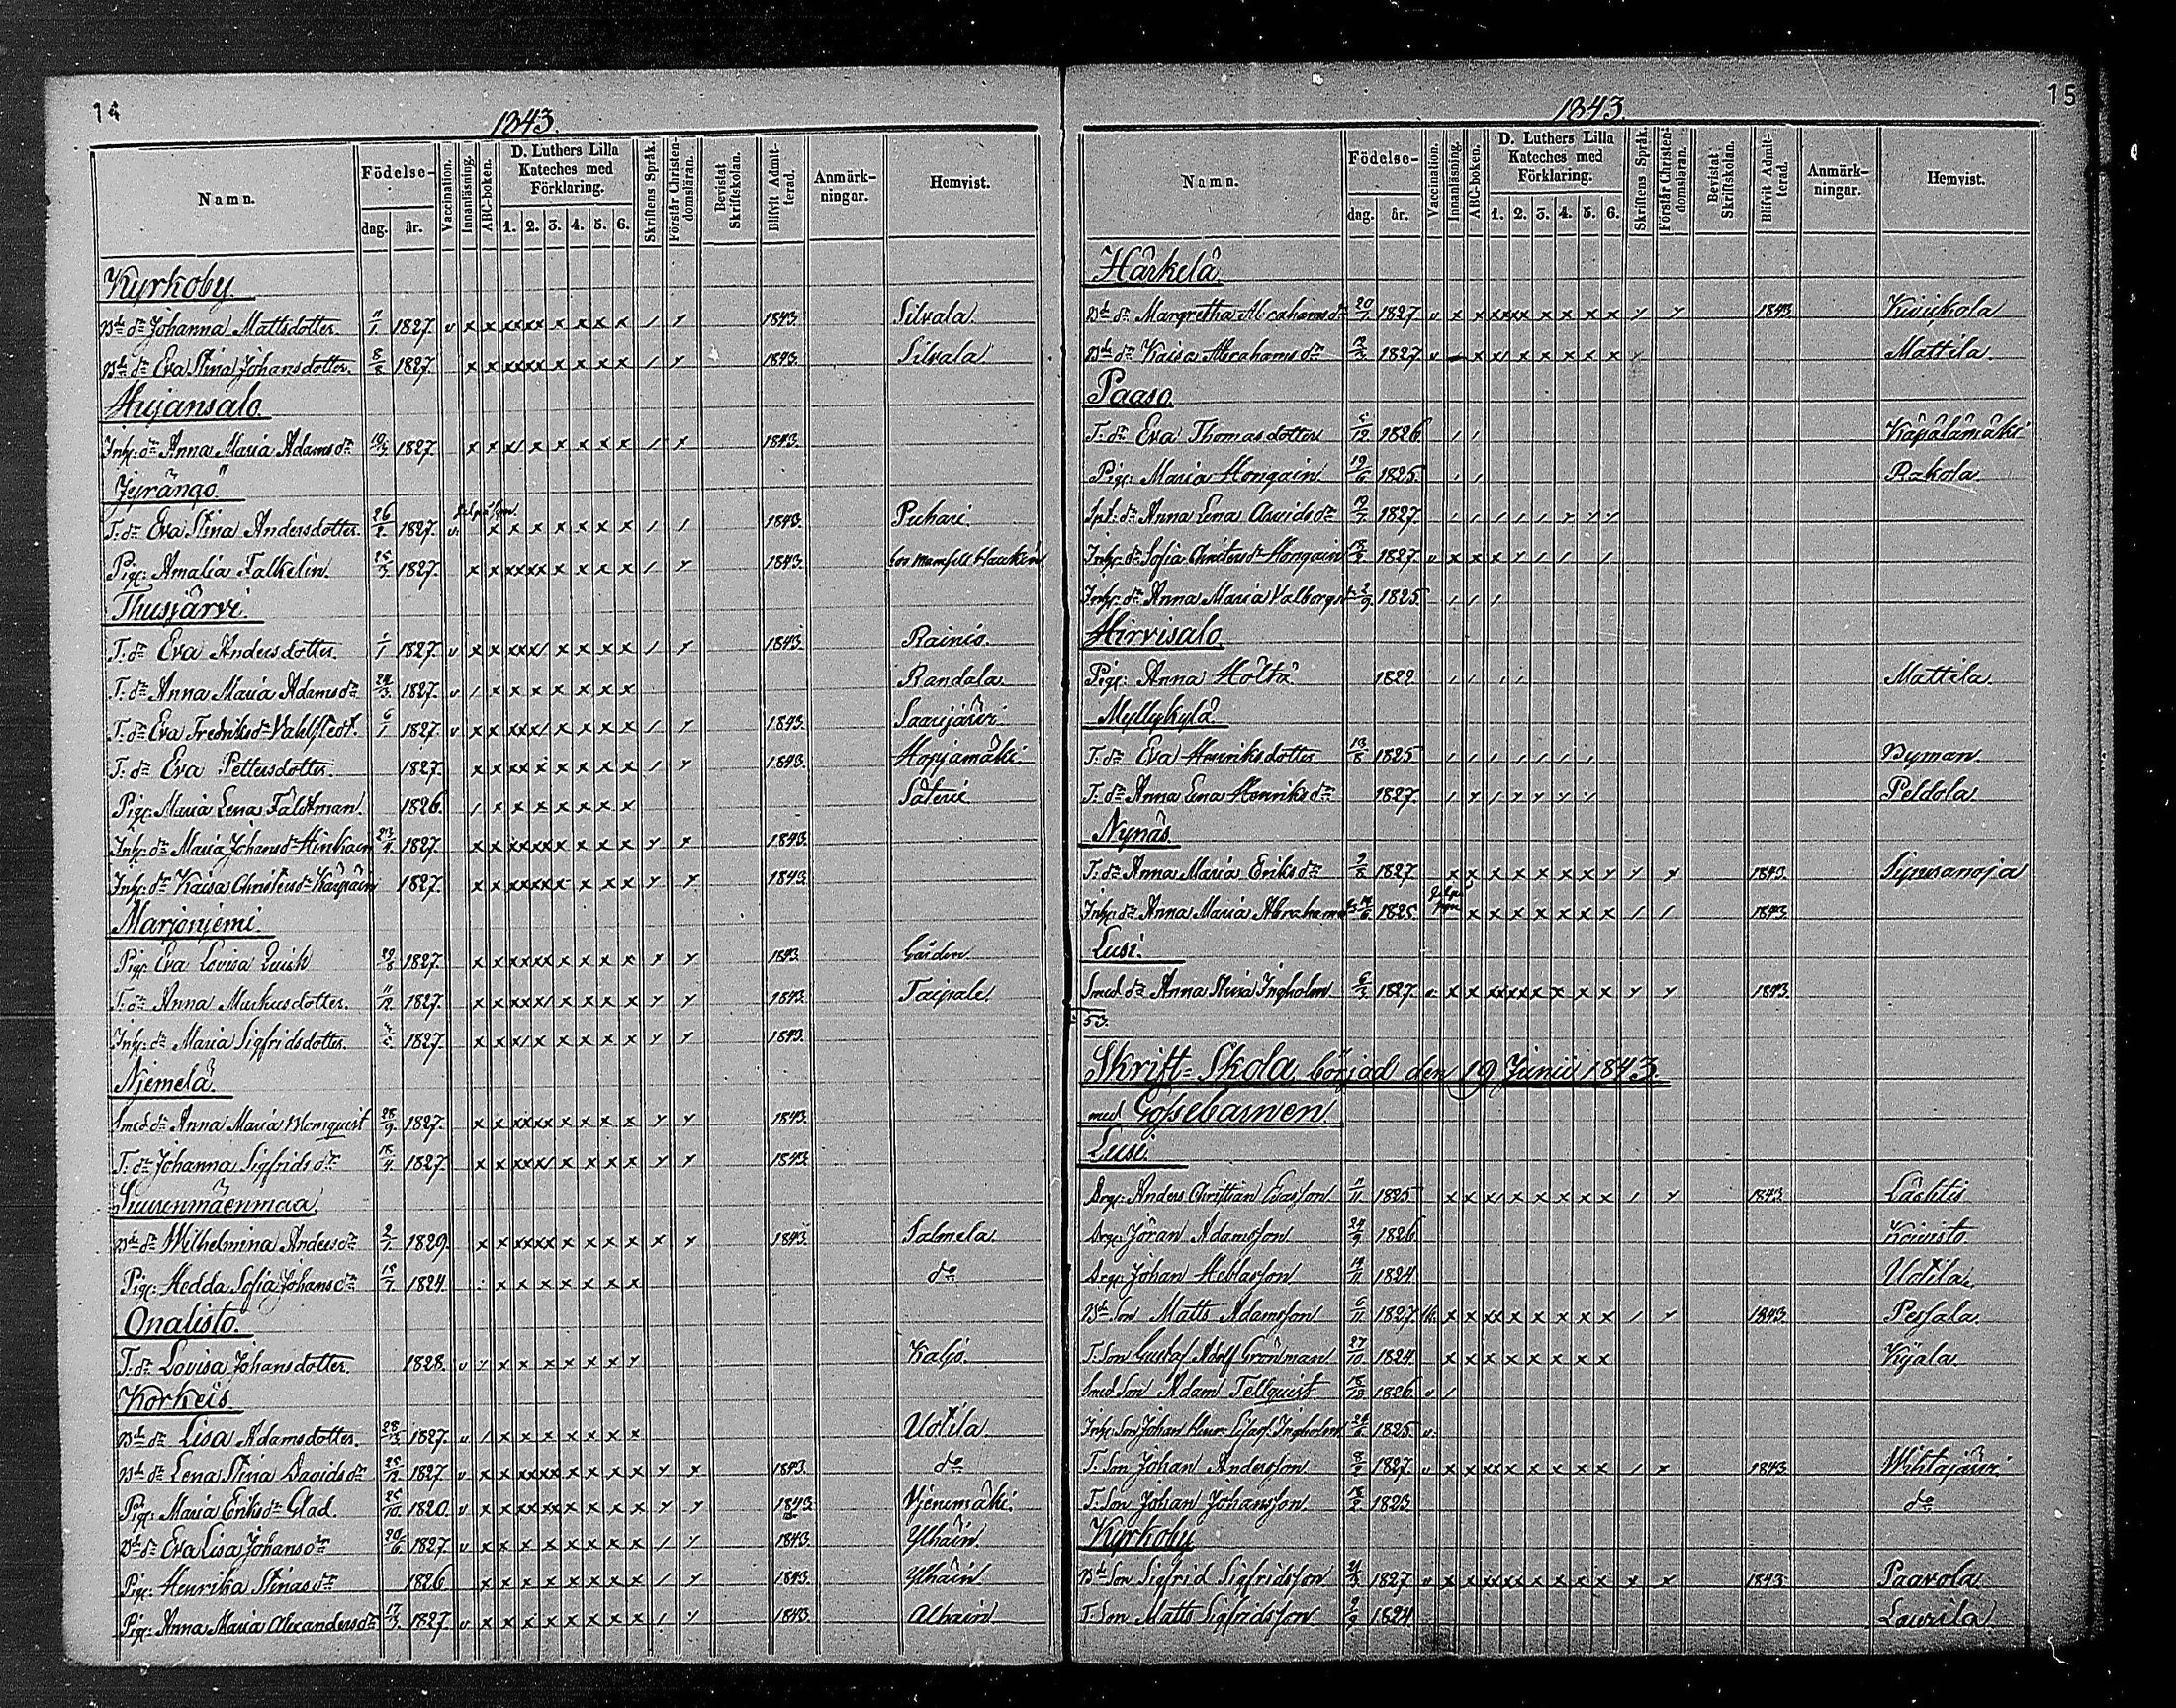 14
1843.
Namn. Födelse- dag. år. Vaccination. Innanläsning. ABC-boken. D. Luthers Lilla Kateches med Förklaring. 1. 2. 3. 4. 5. 6. Skriftens Språk. Förstår Christendomsläran. Bevistat Skriftskolan. Blifvit Admitterad. Anmärkningar. Hemvist.
Kyrkoby.
Bde dr Johanna Mattsdotter. 11/1 1827. v x x xx xx x x x x / y 1843. Silvala.
Bde dr Eva Stina Johansdotter. 8/8 1827. x x xx xx x x x x / y 1843. Silvala
Hujansalo.
Inh: dr Anna Maria Adamsdr 19/3 1827. x x x/ x x x x x / x 1843.
Jyrängö.
T. dr Eva Stina Andersdotter. 26/2. 1827. v. x x x x x x x / / 1843. Puhari.
Pig: Amalia Falkelin. 25/3 1827. x x xx xx x x x x / y 1843. hos Mamsell Haukin
Thusjärvi.
T. dr Eva Andersdotter. 1827. v x x xx x/ x x x x / y 1843. Rainio.
T. dr Anna Maria Adamsdr 24/3 1827. v / x x x x x x x Randala.
T. dr Eva Fredriksdr Vahlstedt. 6/1 1827. v x x xx x/ x x x x / y 1843. Saarijärvi
T. dr Eva Pettersdotter. 1827. x x xx x x x x x / y 1843. Hopjamäki
Pig: Maria Lena Fältman. 1826. / x x x x x x x Säteri
Inh: dr Maria Johansdr Hinkain 23/4. 1827. x x xx xx x x x x y x 1843.
Inh: dr Kaisa Christersdr Käypäin 1827. x x xx xx x x x x y y 1843.
Marjonjemi.
Pig: Eva Lovisa Quick 29/8 1827. x x xx xx x x x x y y 1843. Gården
T. dr Anna Markusdotter. 11/12 1827. x x xx x/ x x x x y y 1843. Taipale.
Inh: dr Maria Sigfridsdotter. 1827. x x x/ x x x x x y y 1843.
Njemelä.
Smed dr Anna Maria Blomquist 28/9. 1827. x x xx xx x x x x y y 1843.
T. dr Johanna Sigfridsdr 18/4. 1827. x x xx x/ x x x x y y 1843
Suurenmäenmaa
Bde dr Wilhelmina Andersdr 2/1. 1829. x x xx xx x x x x x y 1843. Salmela.
Pig: Hedda Sofia Johansdr 15/7. 1824. x x x x x x x do
Onalisto.
T. dr Lovisa Johansdotter. 1828. v y x x x x x x y Kaljo.
Korkeis.
Bde dr Lisa Adamsdotter. 28/3 1827. v / x x x x x x x Uotila.
Bde dr Lena Stina Davidsdr 25/12 1827. v x x xx xx x x x x y x 1843. do
Pig: Maria Eriksdr Glad. 25/10. 1820. v x x xx xx x x x x y y 1843. Vjenimäki.
Bde dr Eva Lisa Johansdr 20/6 1827. v x x x x x x x x / y 1843. Ylhäin.
Pig: Henrika Stinasdr 1826 x x x x x x x x / y 1843. Ylhäin
Pig: Anna Maria Alexandersdr 17/3. 1827. v x x x x x x x x / y 1843. Alhain
15
1843.
Namn. Födelse- dag. år. Vaccination. Innanläsning. ABC-boken. D. Luthers Lilla Kateches med Förklaring. 1. 2. 3. 4. 5. 6. Skriftens Språk. Förstår Christendomsläran. Bevistat Skriftskolan. Blifvit Admitterad. Anmärkningar. Hemvist.
Härkelä
Bde dr Margretha Abrahamsdr 20/1 1827 v x x xx xx x x x x y y 1843
Bde dr Kaisa Abrahamsdr 12/3 1827 v x x/ x x x x x y Mattila.
Paaso
T. dr Eva Thomasdotter 1826 / / Käpälämäki
Pig: Maria Hongain 19/6 1825. / / Rakola.
Spl: dr Anna Lena Arvidsdr 19/7 1827. / / / / / y y y
Inh: dr Sofia Christersdr Hongain 18/2. 1827. v x x x y / / /
Inh: dr Anna Maria Valborgsdr 2/9. 1825. / / /
Hirvisalo.
Pig: Anna Höltä 1822 / / / / Mattila.
Myllykylä
T. dr Eva Henriksdotter 13/8 1825. / / / / / / / Byman.
T. dr Anna Lena Henriksdr 1827. / y / y y y y Peldola
Nynäs.
T. dr Anna Maria Eriksdr 9/8 1827 x x x x x x x y y x 1843.
Inh: dr Anna Maria Abrahamsdr 1825. x x x x x x x / / 1843
Lusi.
Smed dr Anna Stina Ingholm 6/3 1827. v. x x xx xx x x x x y y 1843.
53.
Skrift-Skola börjad den 19 Junii 1843.
med Gossebarnen.
Lusi.
Drg: Anders Christian Evasson 11/11 1825 x x x/ x x x x x / y 1843
Drg: Jöran Adamsson 24/9 1826 Koivisto.
Drg: Johan Heblasson 19/11 1824. Uotila.
Bde Son Matts Adamsson 6/11 1827. v. x x xx x x x x x / y 1843. Pessala.
T. Son Gustaf Adolf Grönman 27/10 1824 x x x x x x x x Kijala
Smed Son Adam Tellquist 18/12 1826 v /
Inh: Son Johan Henr: Ingholm 24/6 1825. v.
T. Son Johan Andersson 8/2 1827. v x x xx x x x x x / x 1843. Wihtajärvi
T. Son Johan Johansson. 18/2 1823. do
Kyrkoby
Bde Son Sigfrid Sigfridsson 21/3 1827 v x x xx xx x x x x x x 1843 Paavola
T. Son Matts Sigfridsson 2/9 1824. Laurila